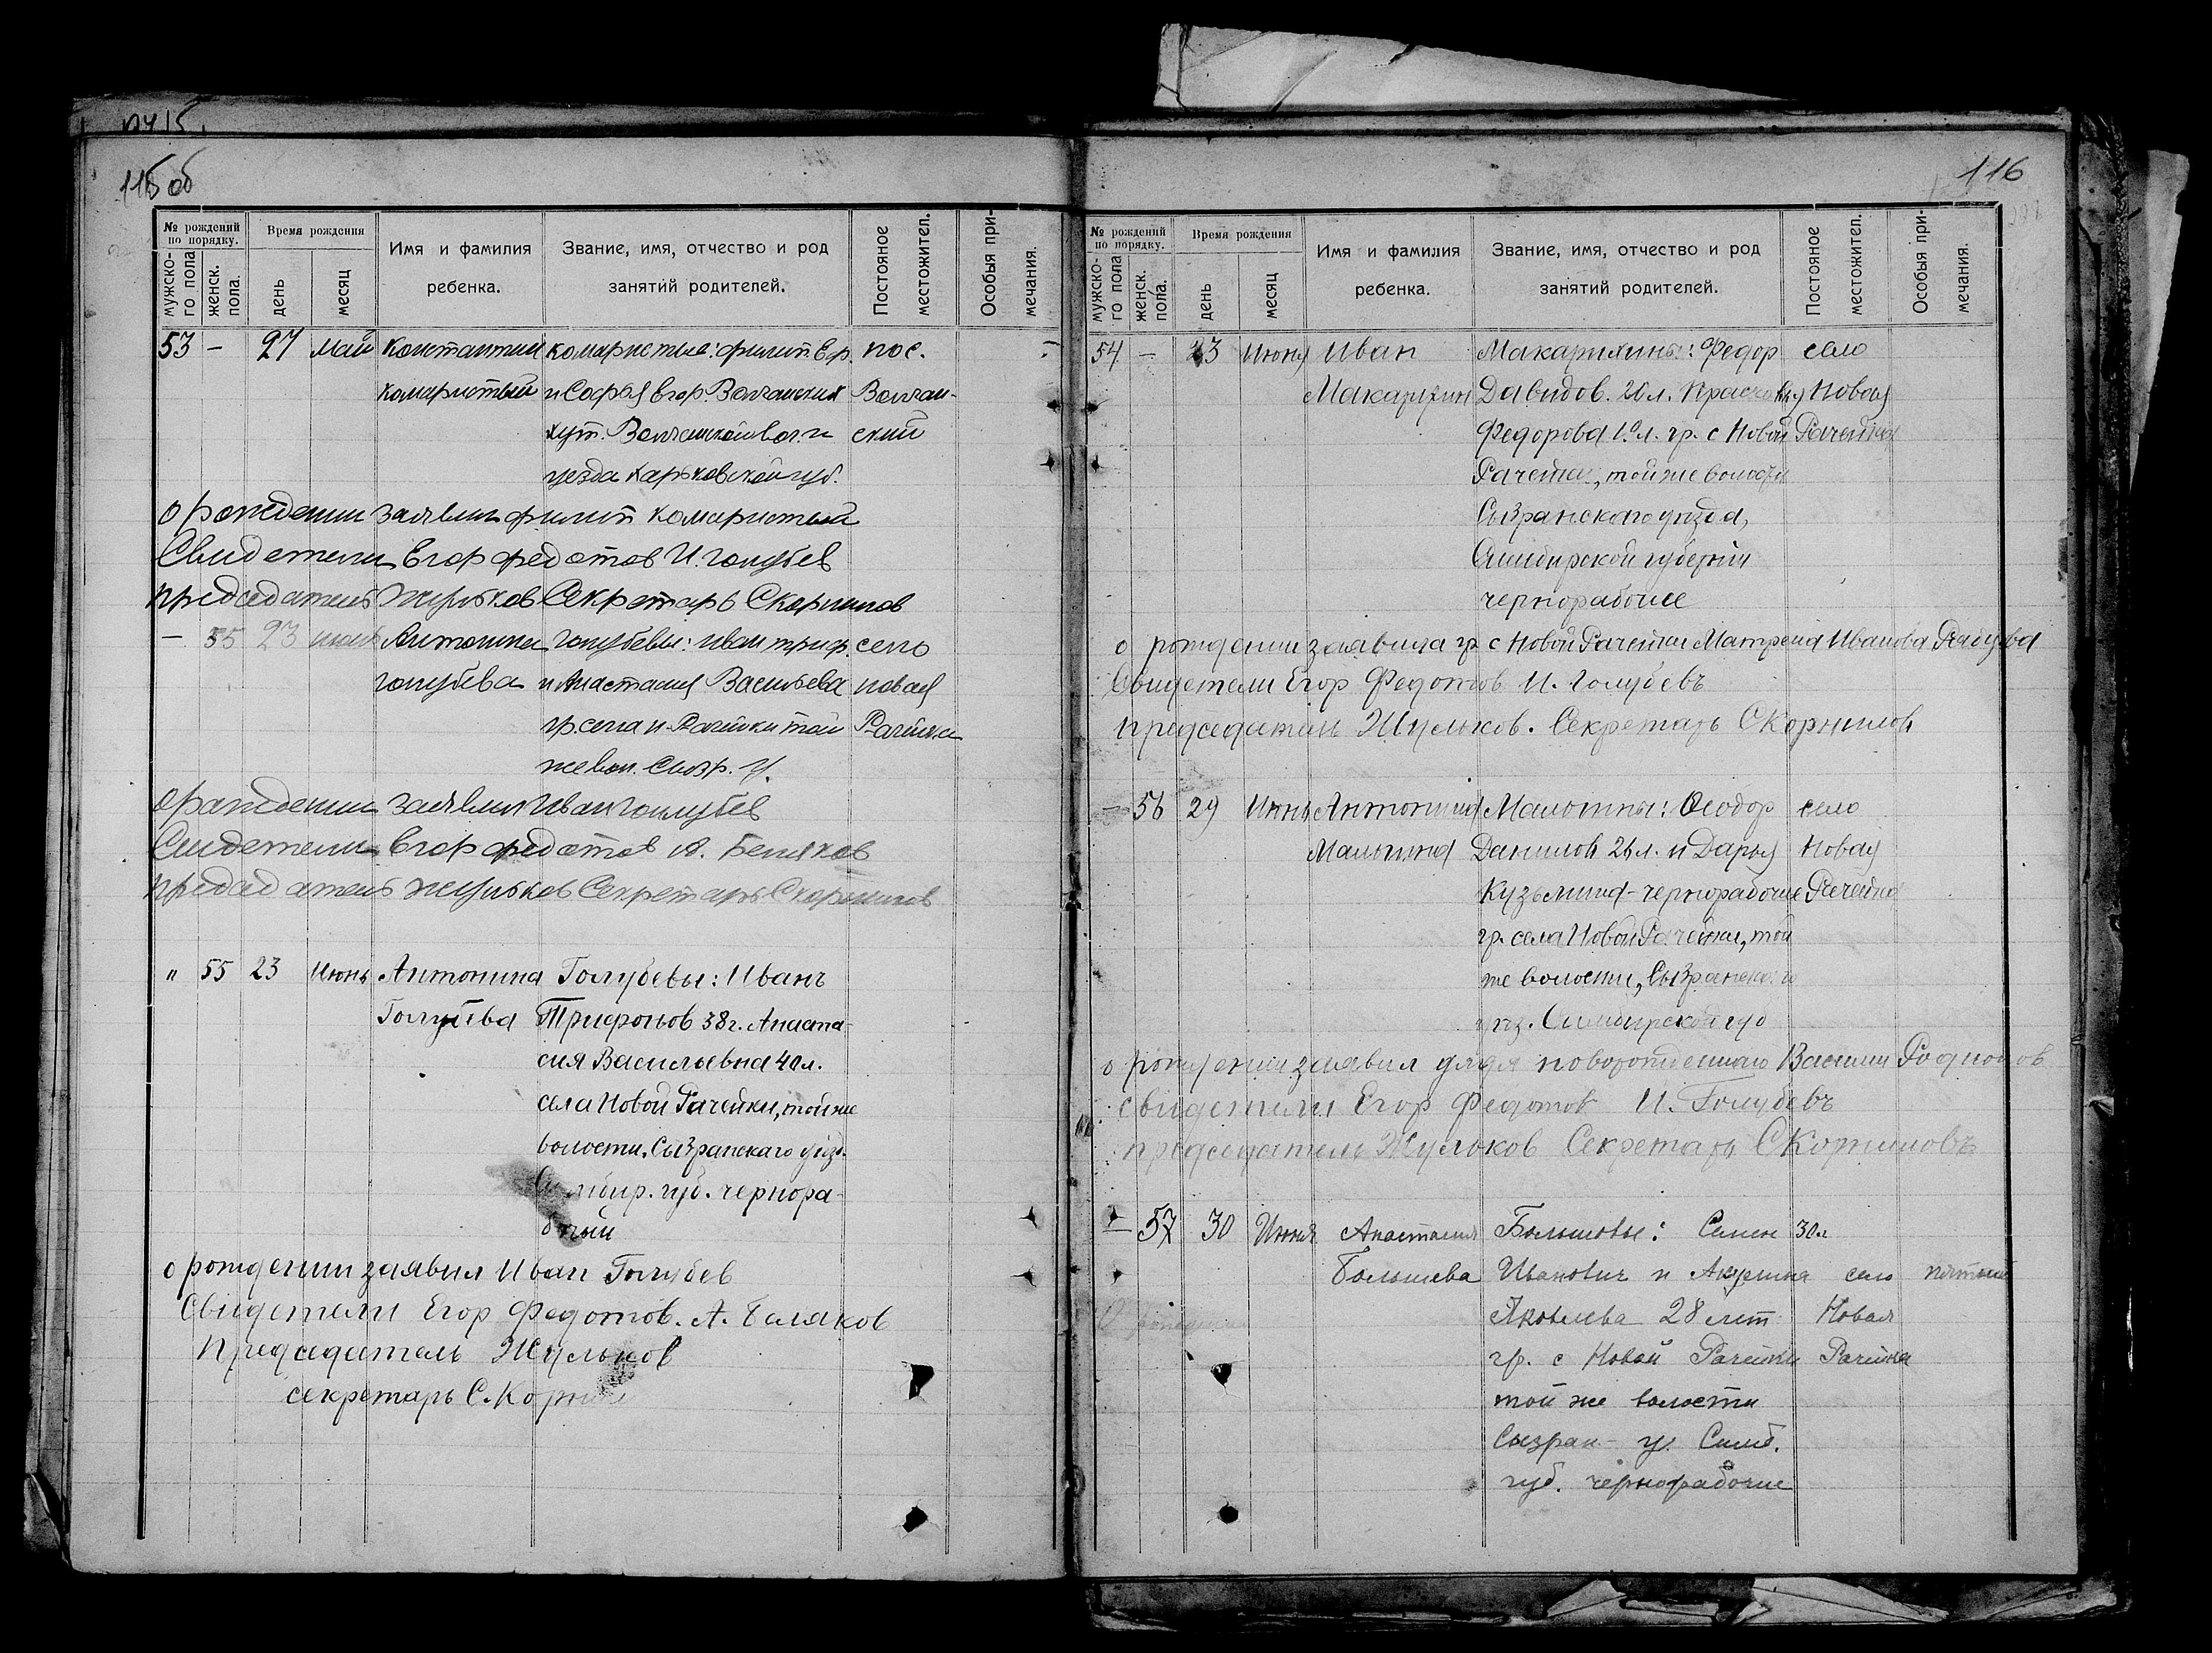 115 об
№ рождений по порядку.
Время рождения
мужско-го пола
женск. пола.
день
месяц
Имя и фамилия ребенка.
Звание, имя, отчество и род занятий родителей.
Постояное местожител.
Особыя при-мечания.
53 — 27 май Константин комаристые: филип. Еф. пос.
комаристый и Софья Егор. Волчанских Волчан-
хут. Волчанской вол. и ский
уезда харьковской губ.
о рождении заявил филип комаристый
Свидетели Егор федотов И. голубев
председатель Жульков Секретарь С Корнилов
— 55 23 июнь Антонина голубевы: иван триф. село
голубева и Анастасия Васильева новая
гр. села н. Рачейки той Рачейка
же вол. Сызр. у.
о рождении заявил Иван голубев
Свидетели Егор федотов А. Беляков
председатель жульков Секретарь С корнилов
" 55 23 Июнь Антонина Голубевы: Иванъ
Голубева Трифонов 38 г. Анаста-
сия Васильевна 40 л.
села Новой Рачейки, той же
волости, Сызранскаго уезд.
Симбир. губ. чернора-
бочий
о рождении заявил Иван Голубев
Свидетели Егор Федотов. А. Беляков
Председатель Жульков
секретарь С. Корнил
116
№ рождений по порядку.
Время рождения
мужско-го пола
женск. пола.
день
месяц
Имя и фамилия ребенка.
Звание, имя, отчество и род занятий родителей.
Постояное местожител.
Особыя при-мечания.
54 — 23 Июня Иван Макарихины: Федор село
Макарихин Давидов. 20 л. Новая
Федорова гр. с Новой Рачейка
Рачейки, той же волости
Сызранскаго уезда,
Симбирской губернии
чернорабочие
о рождении заявила гр. с Новой Рачейки Матрена Иванова
Свидетели Егор Федотов И. Голубевъ
председатель Жульков. Секретарь С Корнилов
— 56 29 Июнь Антонина Малютины: Феодор село
Малютина Данилов 26 л. и Дарья Новая
Кузьмина - чернорабочие Рачейка
гр. села Новой Рачейки, той
же волости, Сызранскаго
уез. Симбирской губ
о рождении заявил дядя новорожденнаго Василий Родионов
свидетели Егор Федотов И. Голубевъ
председатель Жульков Секретарь С Корниловъ
— 57 30 Июня Анастасия Большовы: Семен 30 л
Большева Иванович и Акулина село
Яковлева 28 лет Новая
гр. с Новой Рачейки Рачейка
той же волости
Сызран- у. Симб.
губ. чернорабочие
О рождении